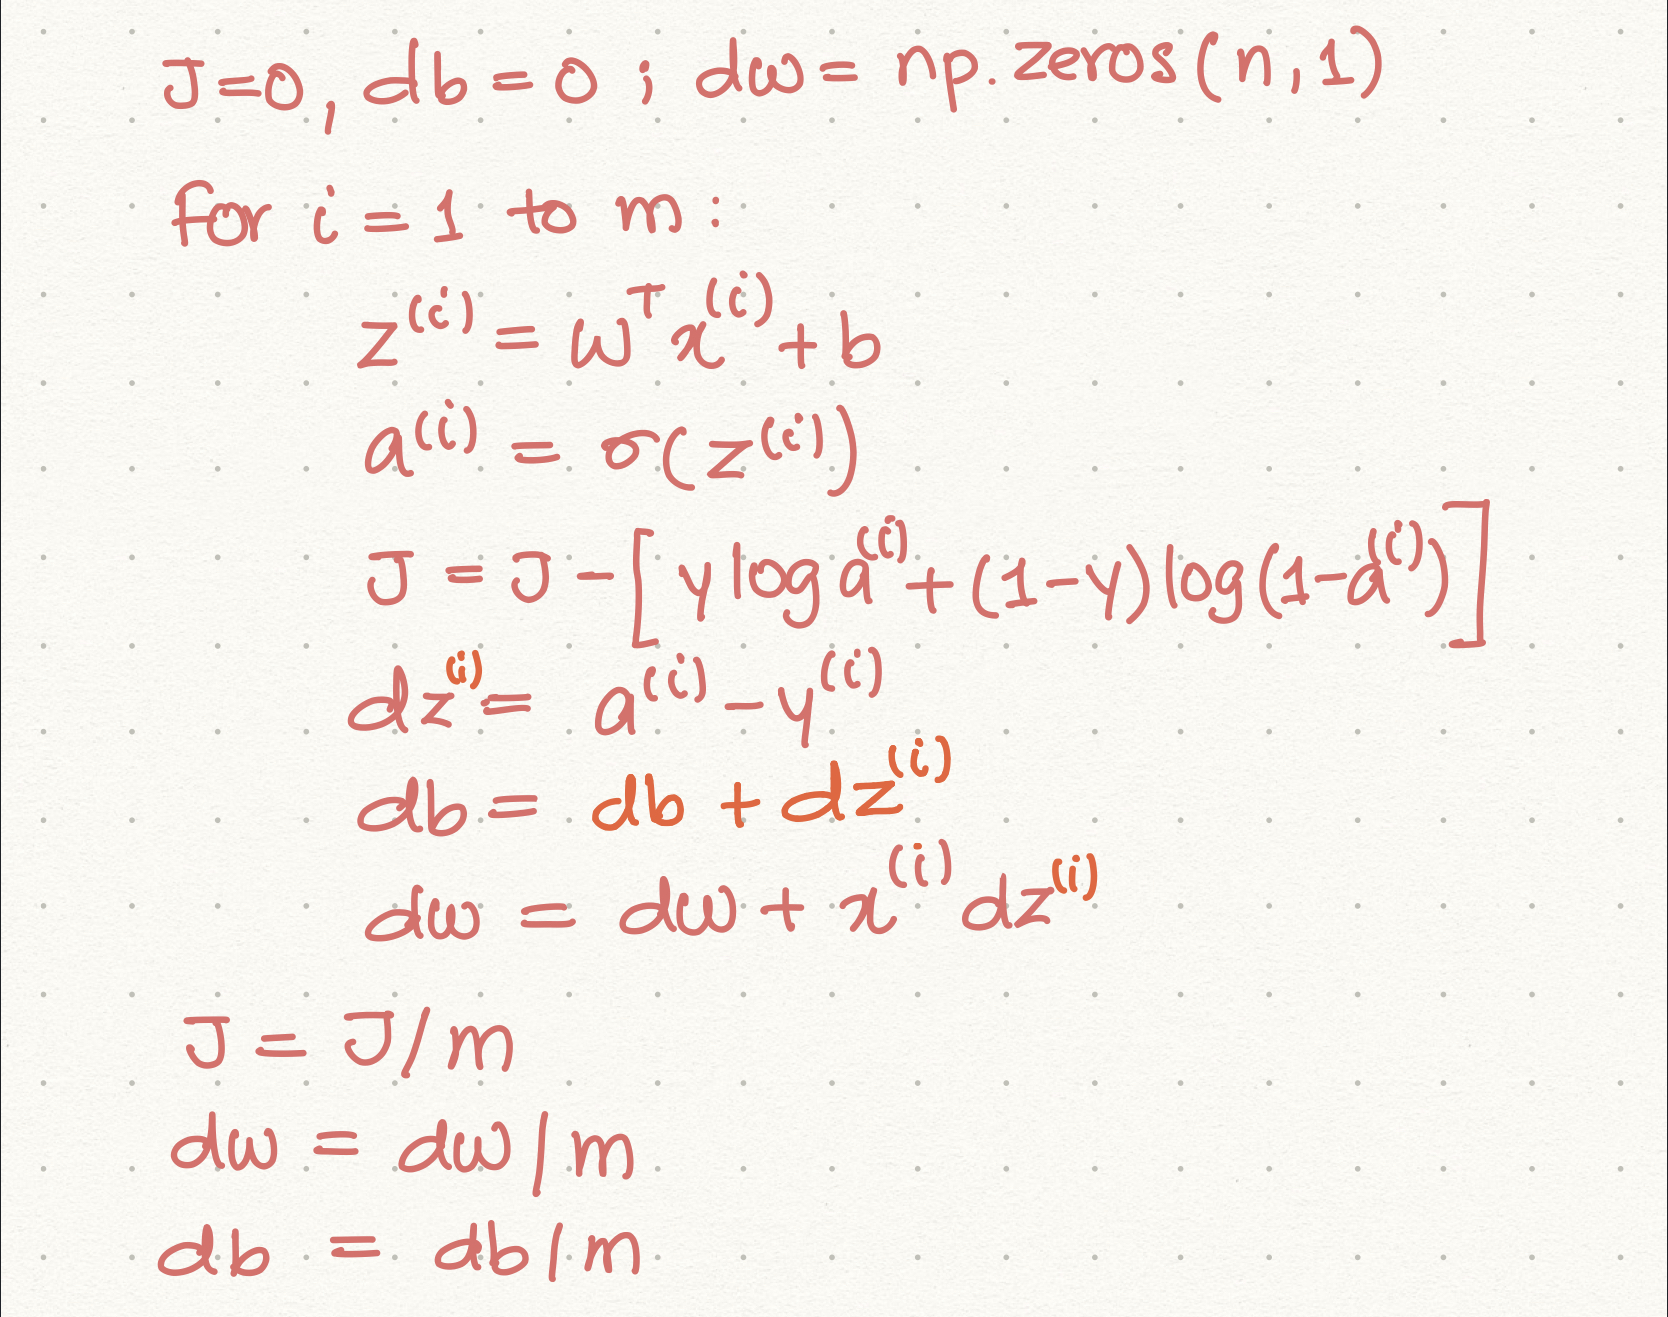 J=0, db=0 ; dw= np.zeros(n,1)
for i=1 to m:
z⁽ⁱ⁾ = wᵀx⁽ⁱ⁾+b
a⁽ⁱ⁾ = σ(z⁽ⁱ⁾)
J = J-[y log a⁽ⁱ⁾+(1-y) log(1-a⁽ⁱ⁾)]
dz⁽ⁱ⁾= a⁽ⁱ⁾-y⁽ⁱ⁾
db = db + dz⁽ⁱ⁾
dw = dw+ x⁽ⁱ⁾ dz⁽ⁱ⁾
J = J/m
dw = dw/m
db = db/m